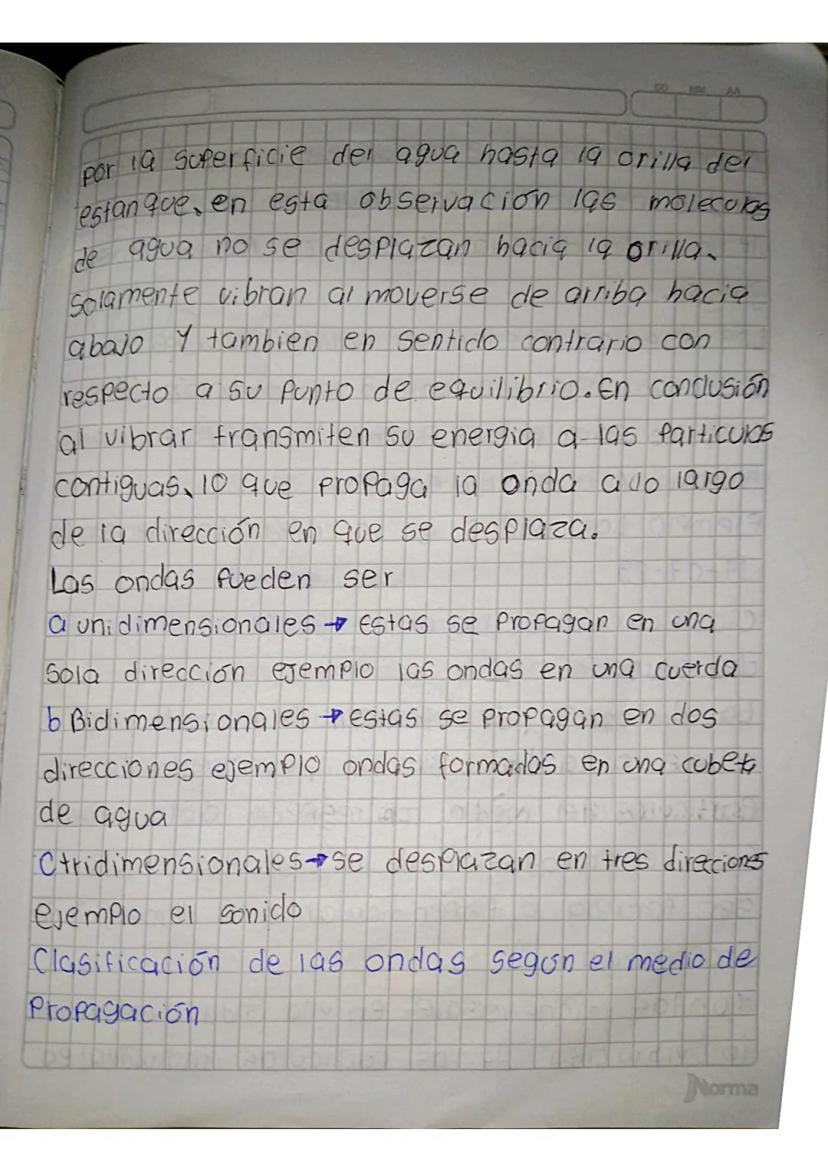 DD MM AA
por la superficie del agua hasta la orilla del
estanque, en esta observación las moleculas
de agua no se desplazan hacia la orilla,
solamente vibran al moverse de arriba hacia
abajo y tambien en sentido contrario con
respecto a su punto de equilibrio. En conclusión
al vibrar transmiten su energia a las particulas
contiguas, lo que propaga la onda a lo largo
de la dirección en que se desplaza.
Las ondas pueden ser
a unidimensionales → Estas se propagan en una
sola dirección ejemplo las ondas en una cuerda
b Bidimensionales → estas se propagan en dos
direcciones ejemplo ondas formadas en una cubeta
de agua
C tridimensionales → se desplazan en tres direcciones
ejemplo el sonido
Clasificación de las ondas segun el medio de
Propagación
Norma